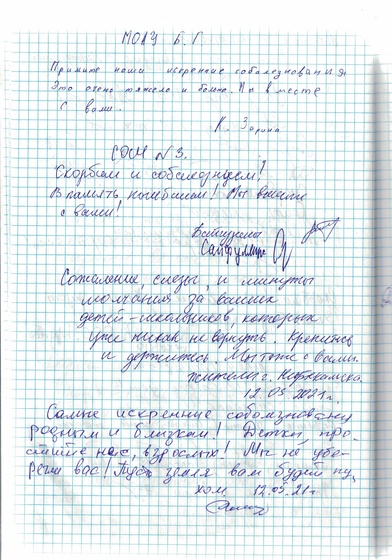 МОАУ Б. Г.
Примите наши искренние соболезнования
Это очень тяжело и больно. Мы вместе
с вами.
К. Зарина
СОШ № 3.
Скорбим и соболезнуем!
В память погибшим! Мы вместе
с вами!
Сайфуллина
Сожаление, слезы, и минуты
молчания за ваших
детей-школьников, которых
уже никак не вернуть. Крепитесь
и держитесь. Мы тоже с вами.
жители г. Нефтекамска.
12.05 2021г.
Самые искренние соболезнования
родным и близким! Детки, про-
стите нас, взрослых! Мы не убе-
регли вас! Пусть земля вам будет пу-
хом 12.05.21г.